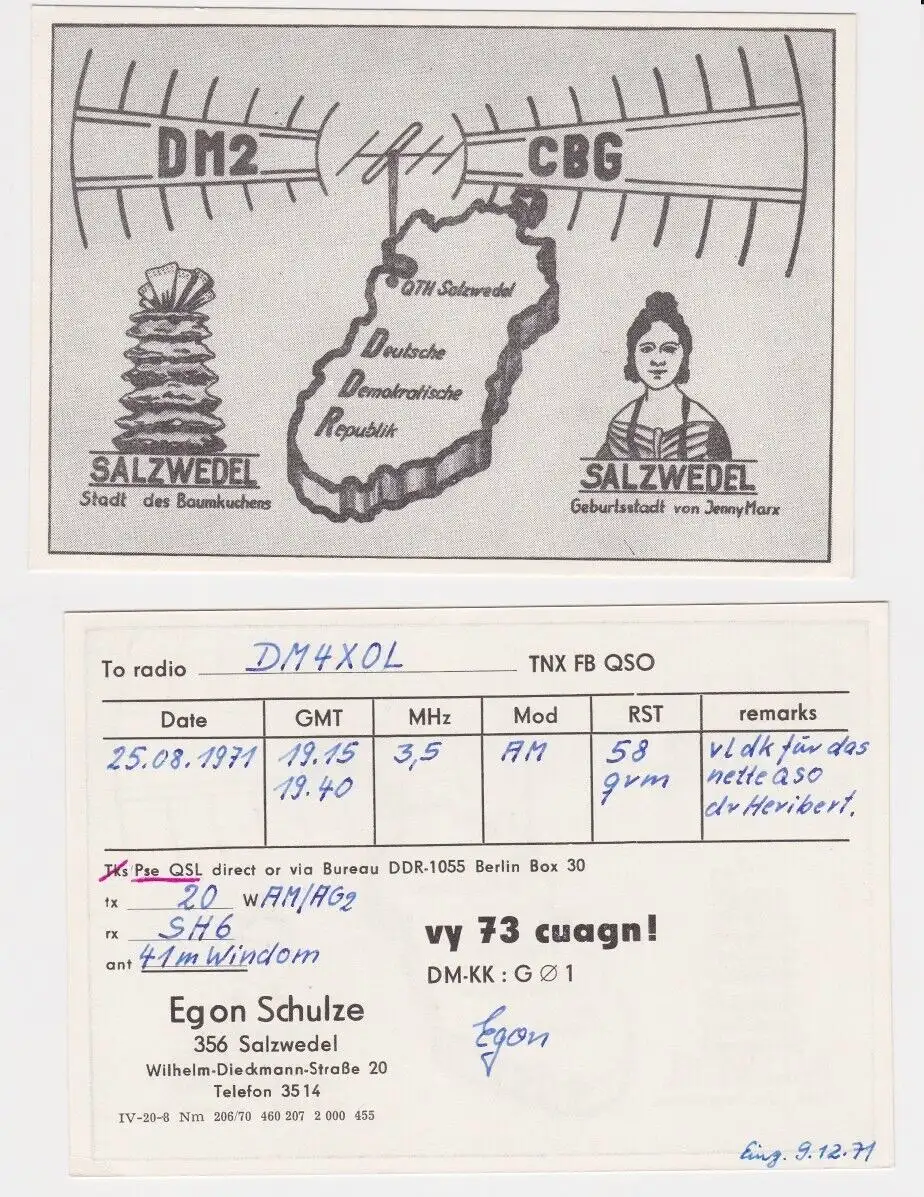 DM2 CBG
QTH Salzwedel
Deutsche
Demokratische
Republik
SALZWEDEL
Stadt des Baumkuchens
SALZWEDEL
Geburtsstadt von Jenny Marx
To radio DM4XOL TNX FB QSO
Date GMT MHz Mod RST remarks
25.08.1971 19.15 3,5 AM 58 vl dk für das
19.40 qrm nette QSO
dr Heribert.
Tks/Pse QSL direct or via Bureau DDR-1055 Berlin Box 30
tx 20 W AM/AG2
rx SH6
ant 41m Windom
vy 73 cuagn!
DM-KK : G Ø 1
Egon Schulze
356 Salzwedel
Wilhelm-Dieckmann-Straße 20
Telefon 3514
IV-20-8 Nm 206/70 460 207 2 000 455
Egon
Eing. 9.12.71